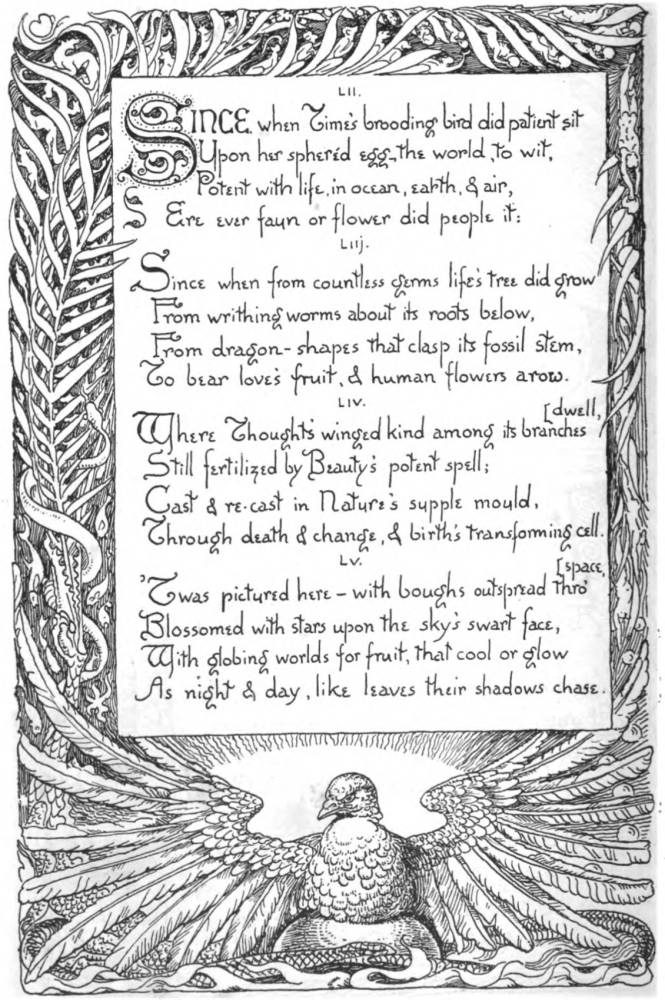 LII.
SINCE when Time's brooding bird did patient sit
Upon her spheréd egg, the world, to wit,
Potent with life, in ocean, earth, & air,
Ere ever faun or flower did people it:
LIIJ.
Since when from countless germs life's tree did grow
From writhing worms about its roots below,
From dragon-shapes that clasp its fossil stem,
To bear love's fruit, & human flowers arow.
LIV.
[dwell,
Where Thought's winged kind among its branches
Still fertilized by Beauty's potent spell;
Cast & re-cast in Nature's supple mould,
Through death & change, & birth's transforming cell.
LV.
[space,
'Twas pictured here – with boughs outspread thro'
Blossomed with stars upon the sky's swart face,
With globing worlds for fruit, that cool or glow
As night & day, like leaves their shadows chase.